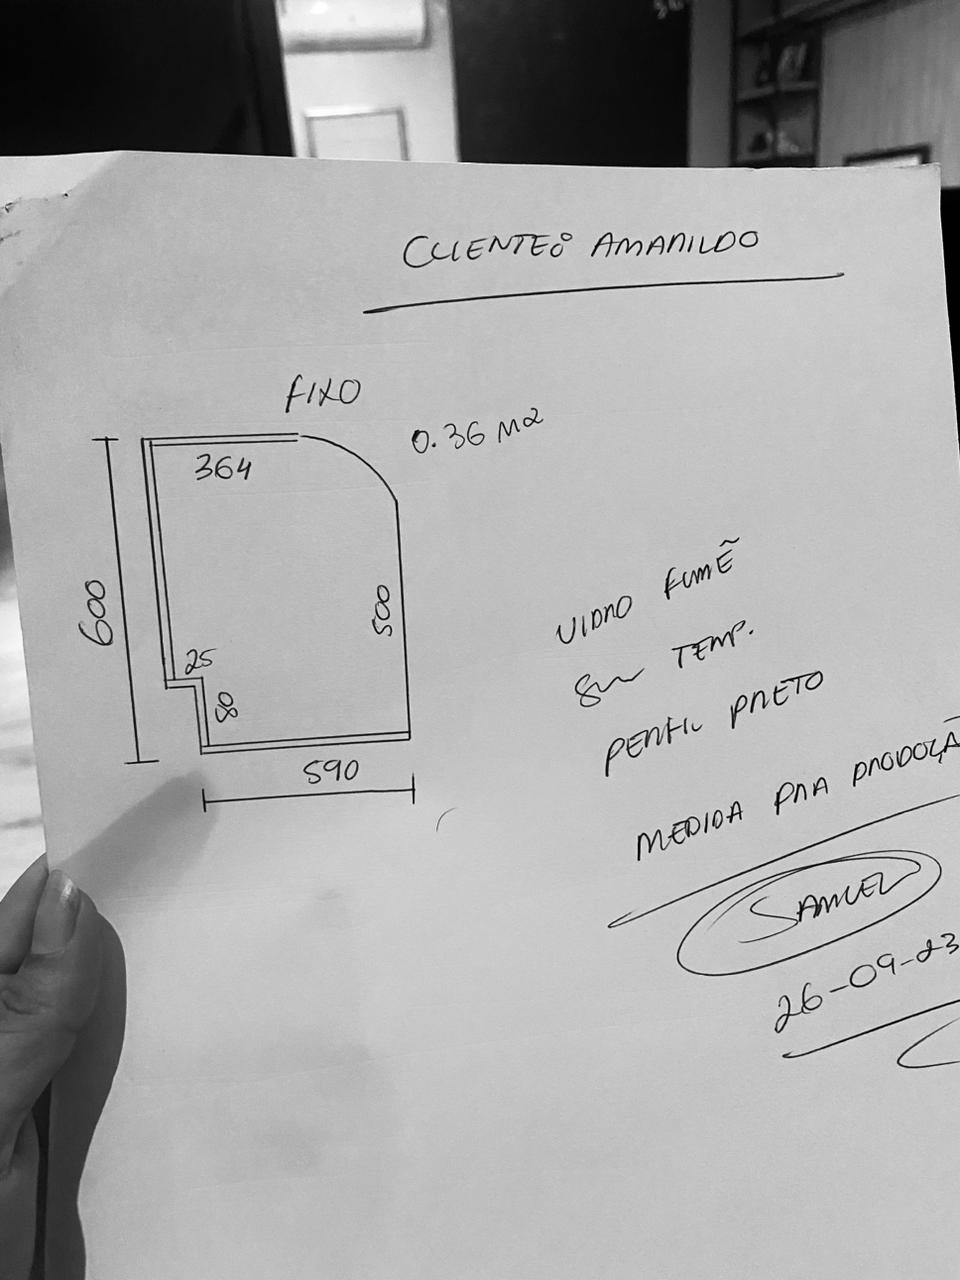 CLIENTE: AMARILDO
FIXO
0.36 M2
364
600
500
25
80
590
VIDRO FUMÊ
8mm TEMP.
PERFIL PRETO
MEDIDA PRA PRODUÇÃ
SAMUEL
26-09-23